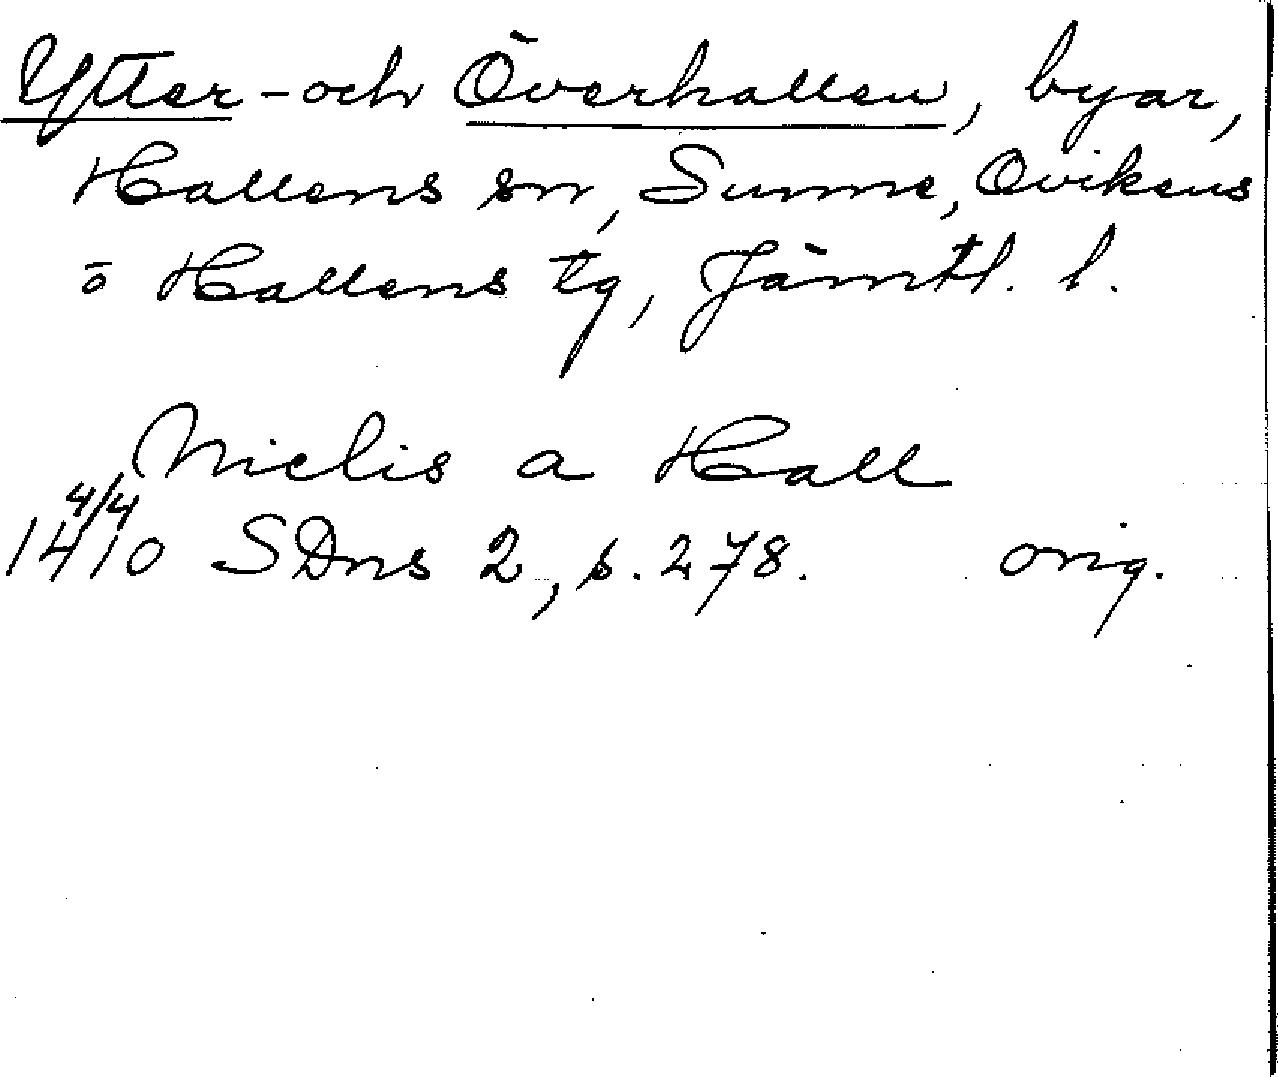 Ytter- och Överhallen, byar,
Hallens sn, Sunne, Ovikens
o Hallens tg, Jämtl. l.
Nielis a Hall
4/4
1410 SDns 2, s. 278. orig.